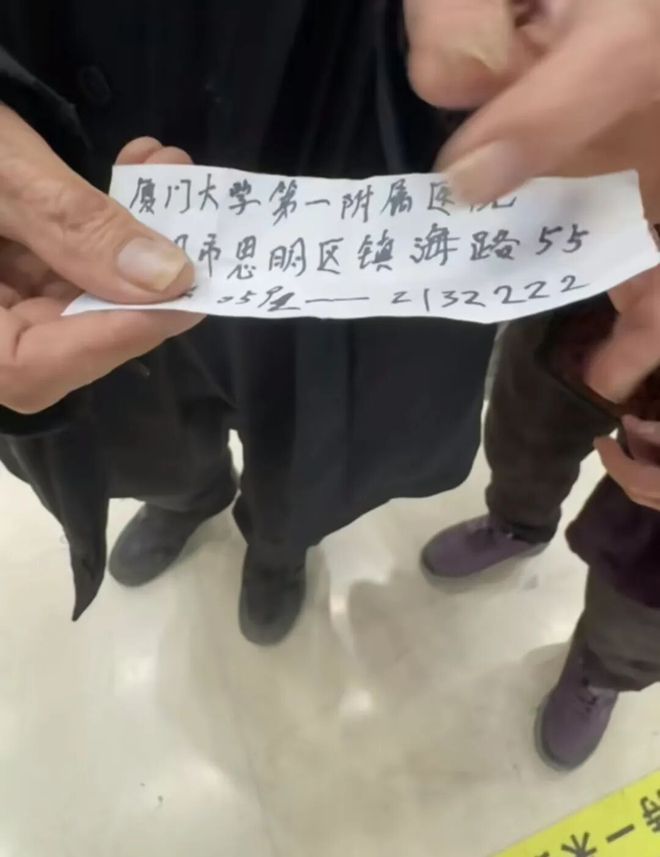 厦门大学第一附属医院
门市思明区镇海路55
05 — 2132222
一米